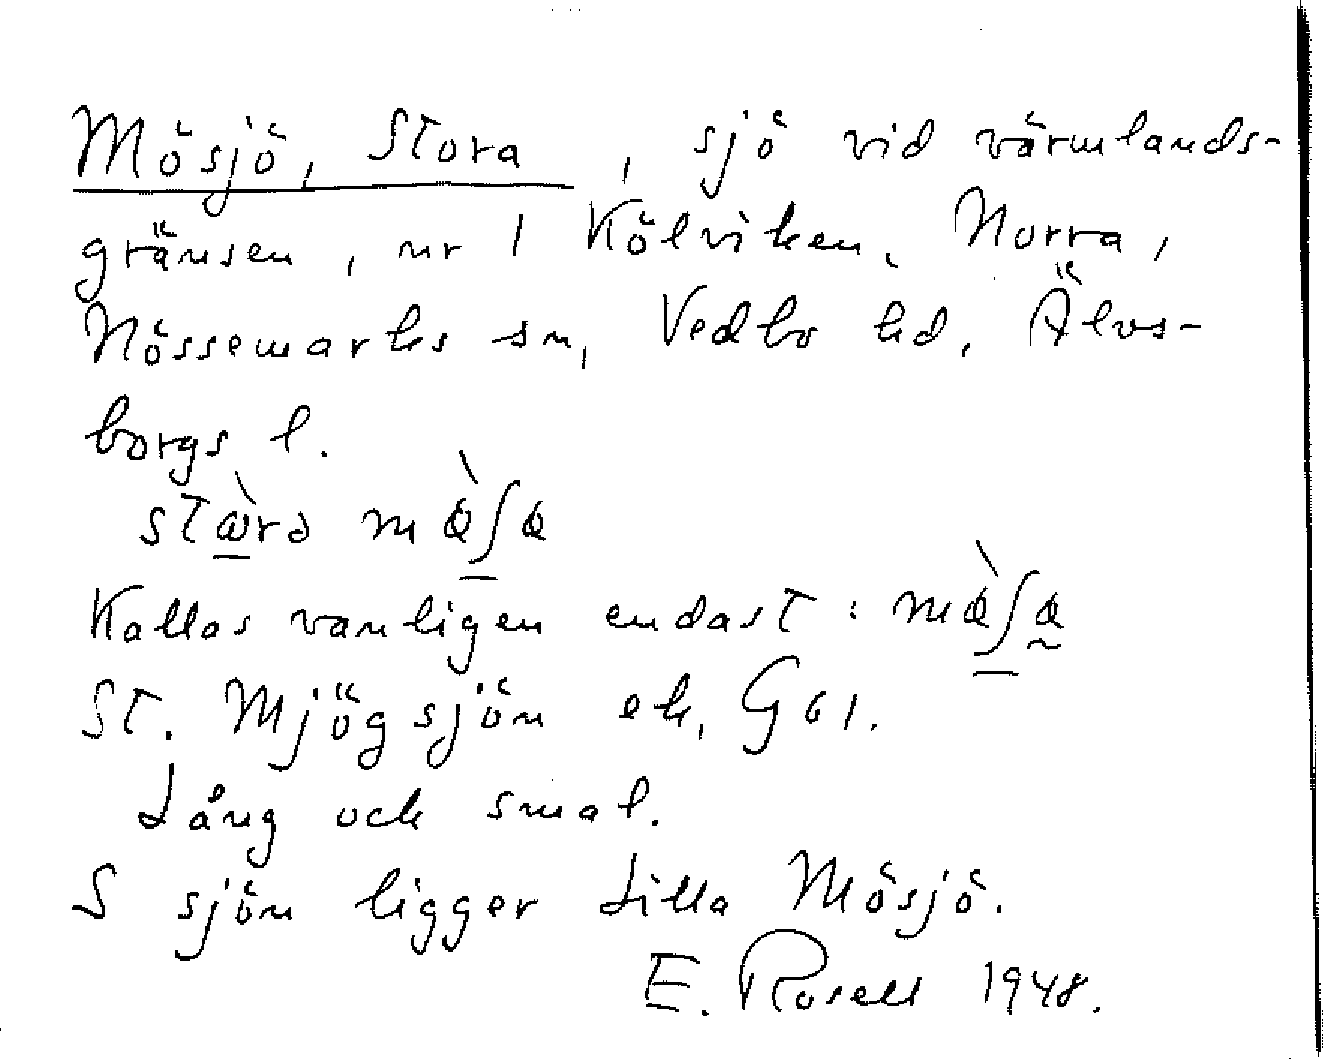 Mösjö, Stora, sjö vid värmlands-
gränsen, nr 1 Kölviken, Norra,
Nössemarks sn, Vedbo hd, Älvs-
borgs l.
Kallas vanligen endast:
St. Mjögsjön ek, G61.
Lång och smal.
S sjön ligger Lilla Mösjö.
E. Rosell 1948.